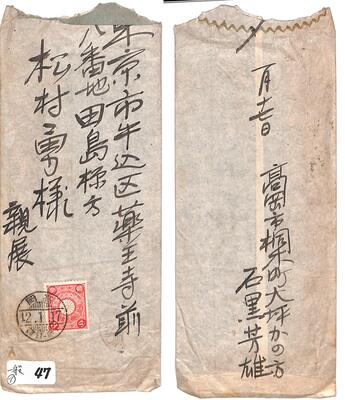 東京市牛込区薬王寺前
八番地田島様方
松村勇様
親展
12.1.17
47
一月十七日
高岡市桐木町大坪かの方
石黒芳雄